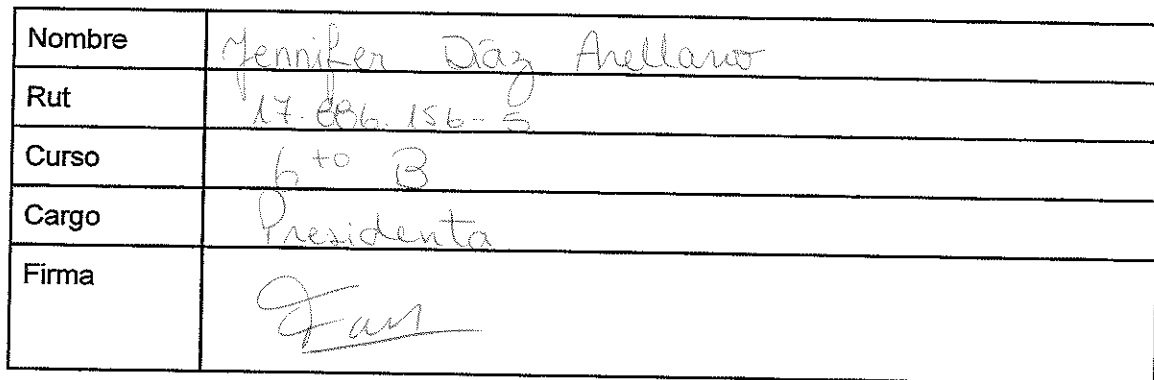 Nombre Jennifer Díaz Arellano
Rut 17.886.156-5
Curso 6to B
Cargo Presidenta
Firma